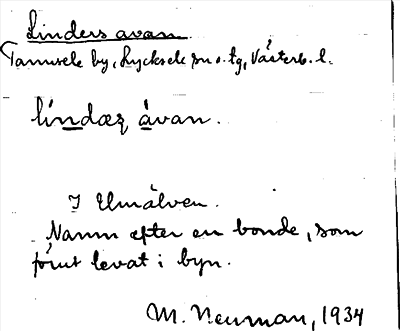 Linders avan.
Tannsele by, Lycksele sn o. tg, Västerb. l.
líndæʀ ávan.
I Umälven.
Namn efter en bonde, som
förut levat i byn.
M. Neuman, 1934